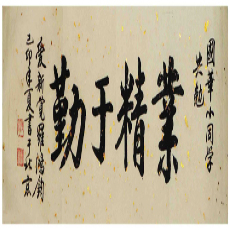 國華小同学
共勉
業精于勤
爱新觉羅鴻鈞
己卯年夏書于北京